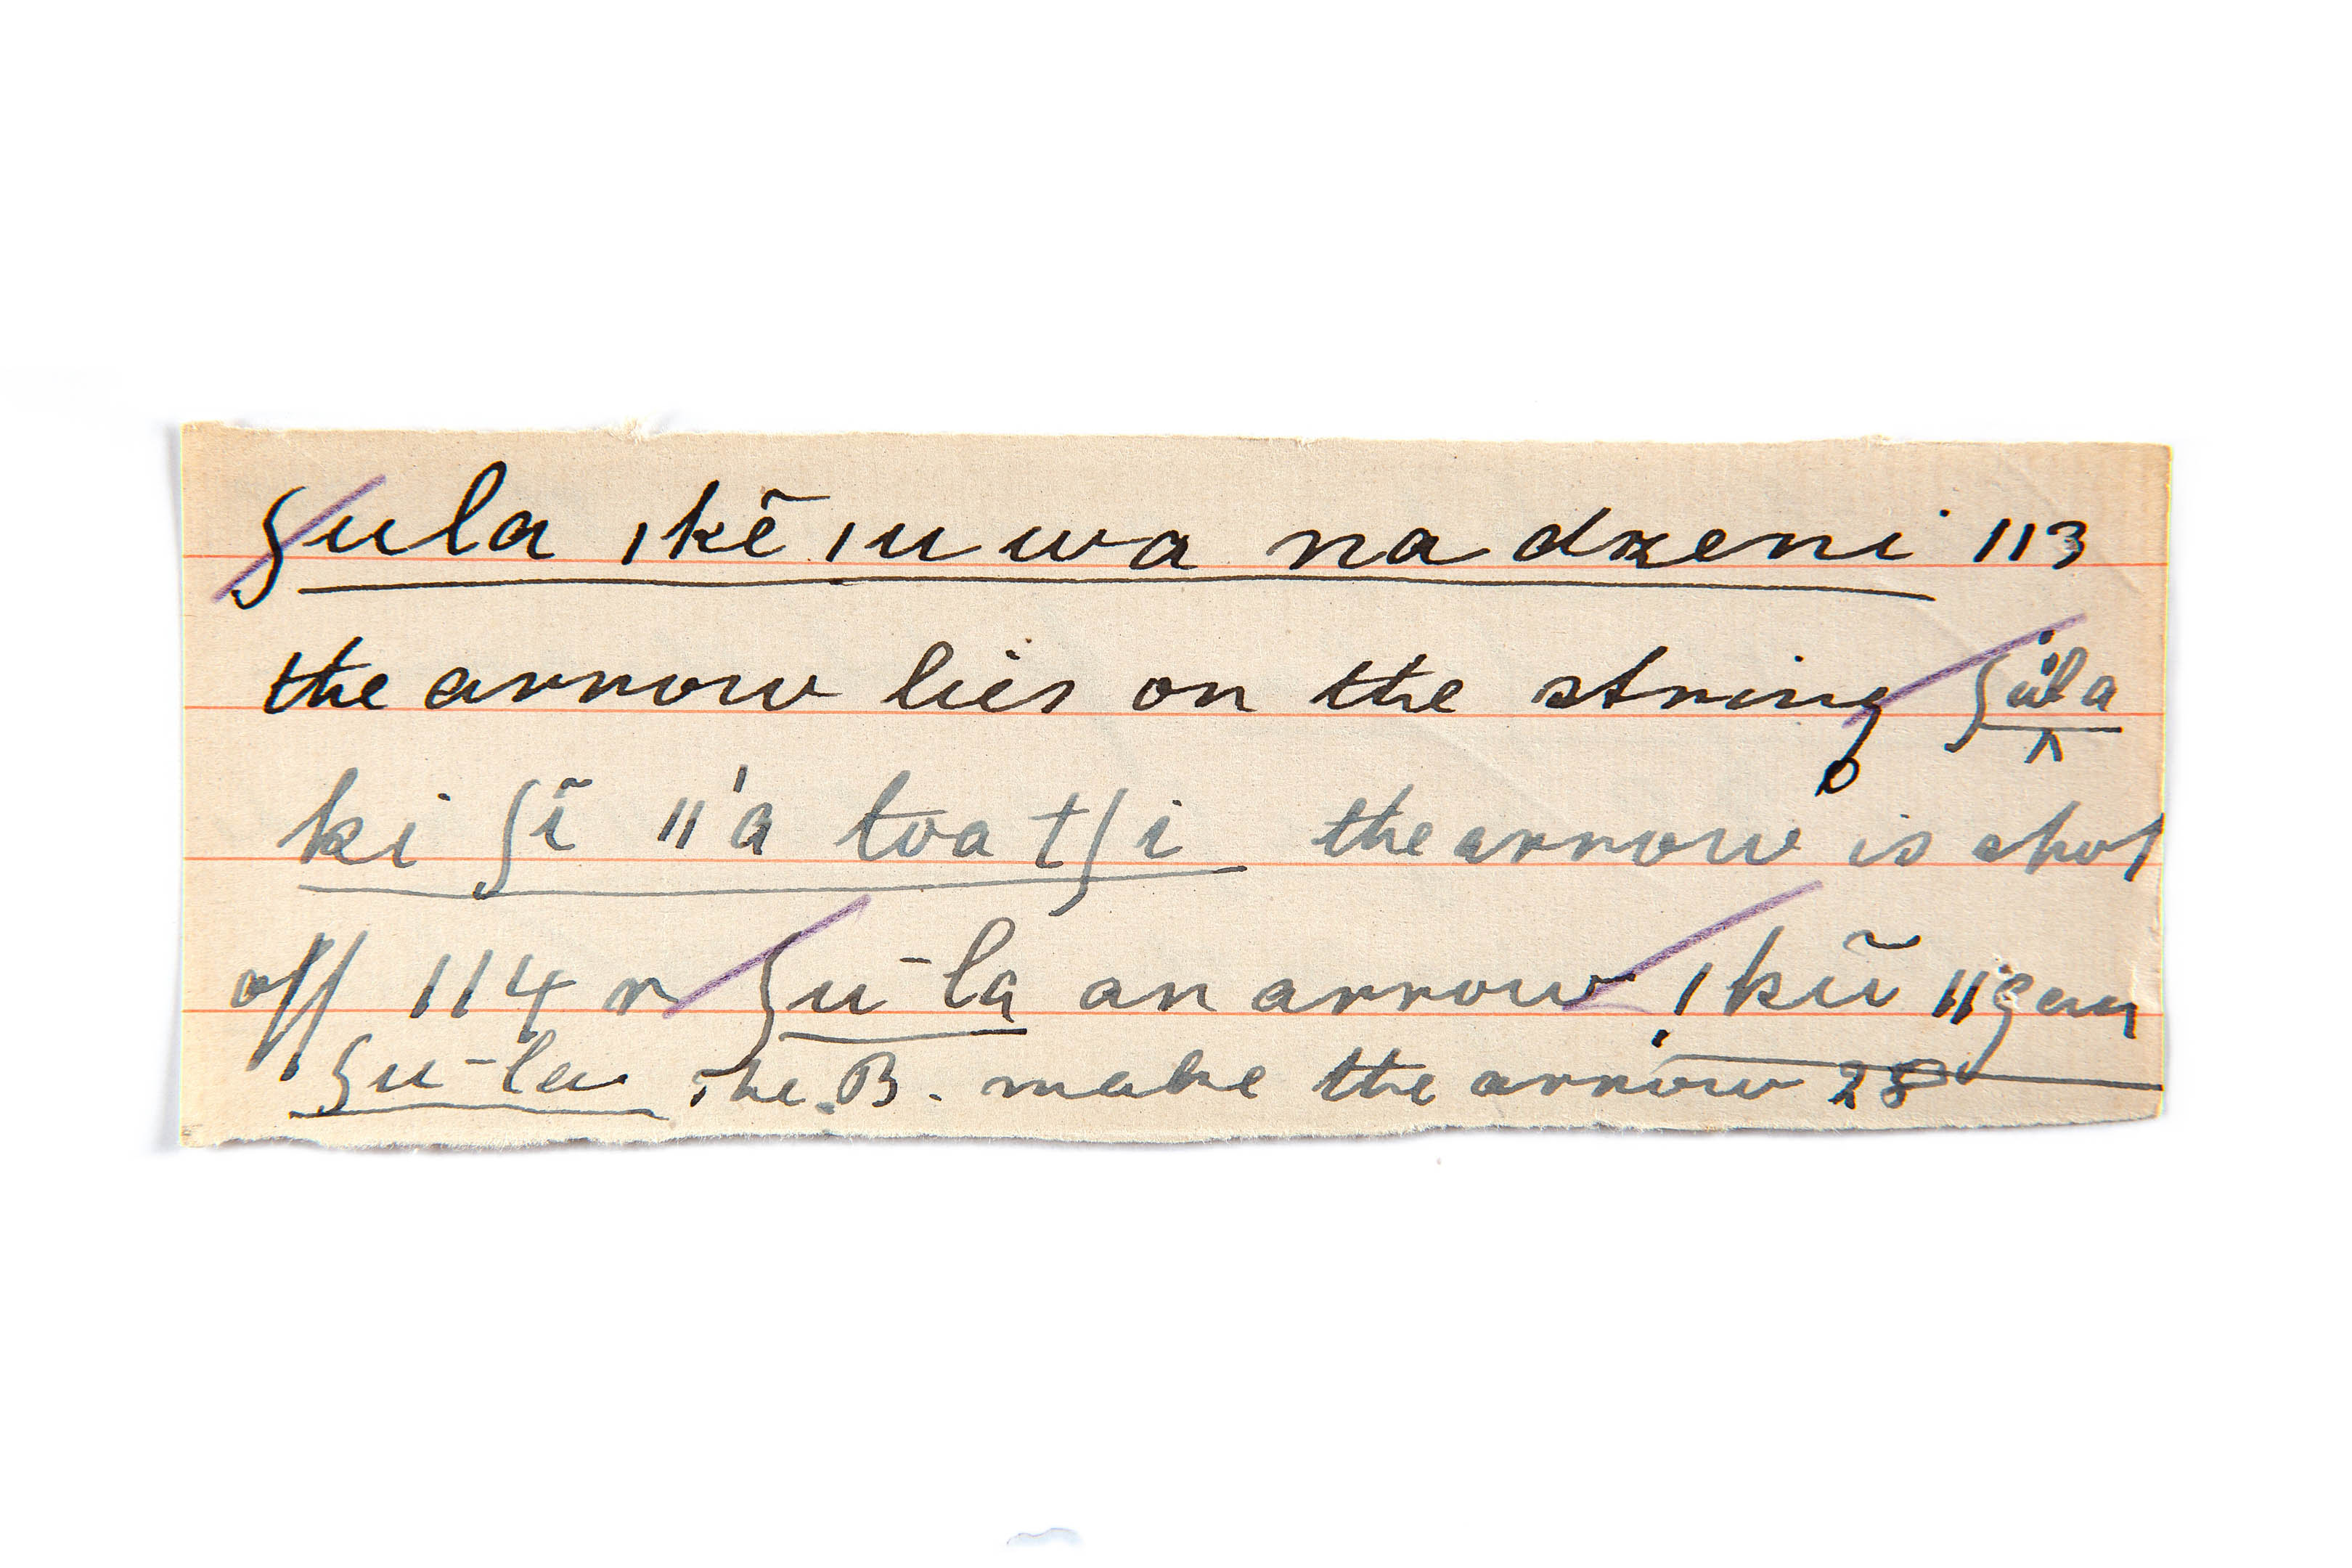 ʃula ıkẽ ıu wa na dzeni 113
the arrow lies on the string ʃula
ki ʃĩ ǁ'a toa tʃi the arrow is shot
off 114 r ʃu-la an arrow !kũ ǁgau
ʃu-la The B. make the arrow 28